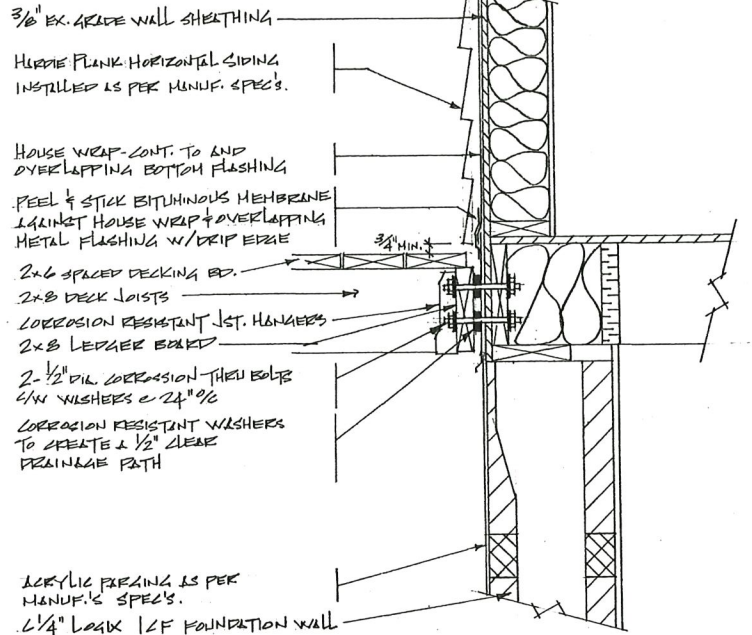 3/8" EX. GRADE WALL SHEATHING
HARDIE PLANK HORIZONTAL SIDING
INSTALLED AS PER MANUF. SPEC'S.
HOUSE WRAP-CONT. TO AND
OVERLAPPING BOTTOM FLASHING
PEEL & STICK BITUMINOUS MEMBRANE
AGAINST HOUSE WRAP & OVERLAPPING
METAL FLASHING W/DRIP EDGE
3/4" MIN.
2x6 SPACED DECKING BD.
2x8 DECK JOISTS
CORROSION RESISTANT JST. HANGERS
2x8 LEDGER BOARD
2-1/2" DIA. CORROSSION THRU BOLTS
C/W WASHERS @ 24" O/C
CORROSION RESISTANT WASHERS
TO CREATE A 1/2" CLEAR
DRAINAGE PATH
ACRYLIC PARGING AS PER
MANUF.'S SPEC'S.
6 1/4" LOGIX ICF FOUNDATION WALL